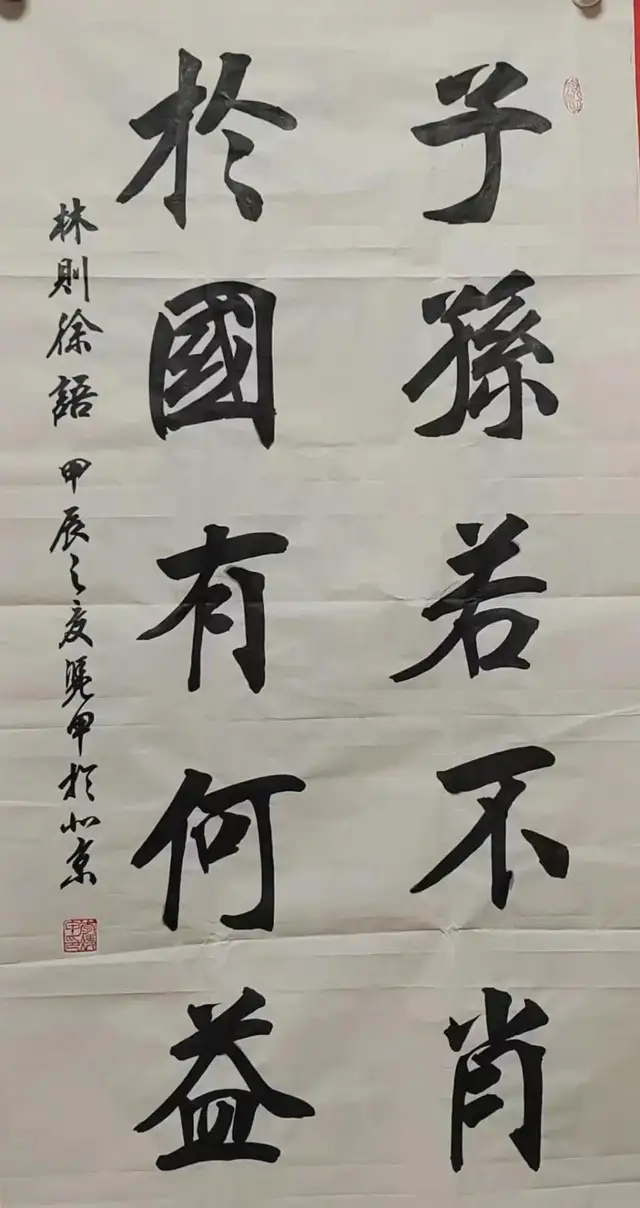 子孫若不肖
於國有何益
林則徐語 甲辰之夏曉甲於北京